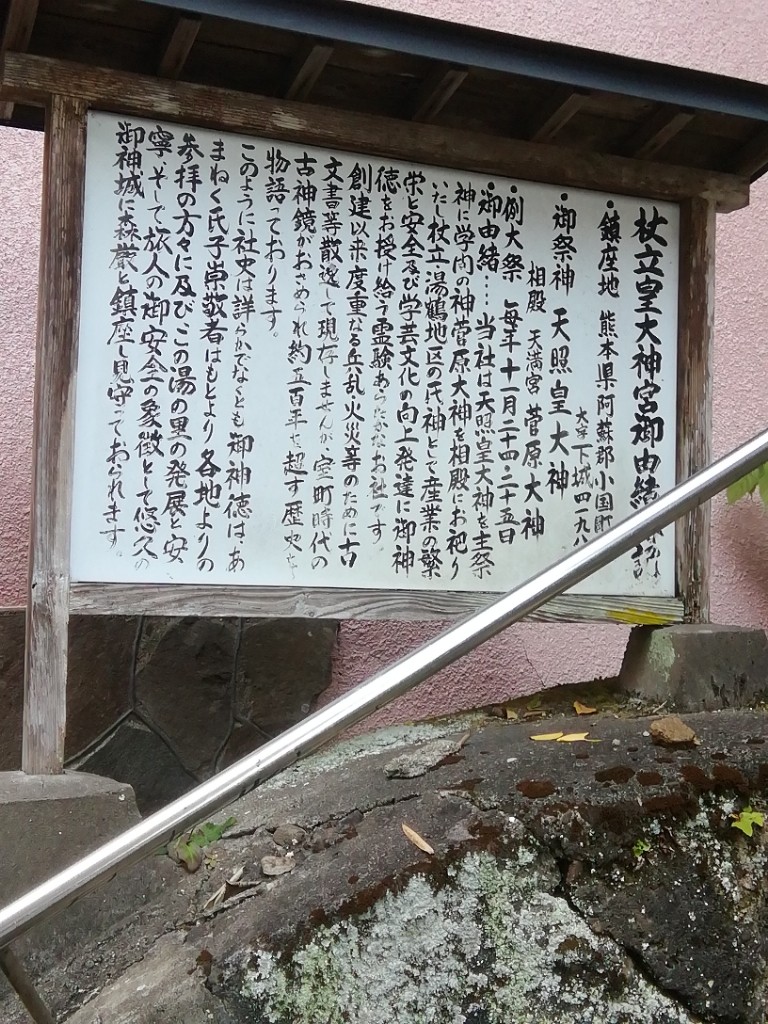 杖立皇大神宮御由緒
・鎮座地 熊本県阿蘇郡小国町
大字下城四一九八
・御祭神 天照皇大神
相殿 天満宮 菅原大神
・例大祭 毎年十一月二十四・二十五日
・御由緒… 当社は天照皇大神を主祭
神に学問の神菅原大神を相殿にお祀り
いたし杖立湯鶴地区の氏神として産業の繁
栄と安全及び学芸文化の向上発達に御神
徳をお授け給う霊験あらたかなお社です。
創建以来度重なる兵乱・火災等のために古
文書等散逸して現存しませんが室町時代の
古神鏡がおさめられ約五百年を超す歴史を
物語っております。
このように社史は詳らかでなくとも御神徳は、あ
まねく氏子崇敬者はもとより各地よりの
参拝の方々に及びこの湯の里の発展と安
寧、そして旅人の御安全の象徴として悠久の
御神域に森厳と鎮座し見守っておられます。